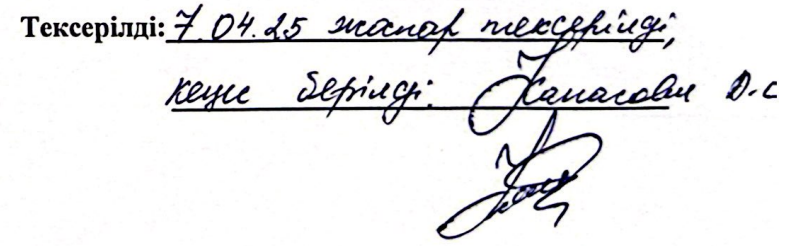 Тексерілді: 7.04.25 жоспар тексерілді,
кеңес берілді. Жанасова Д.С